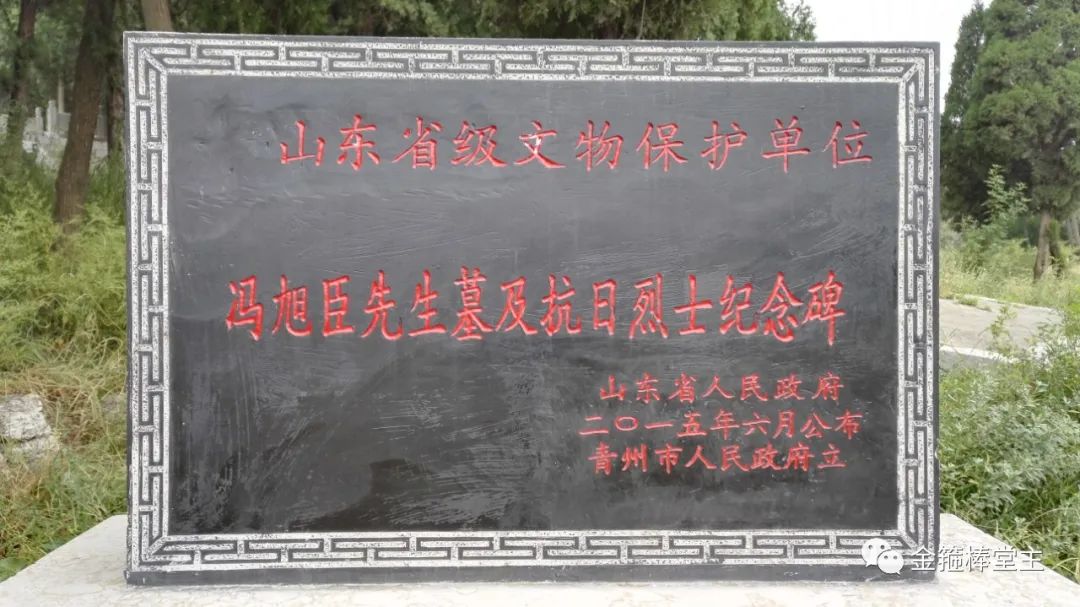 山东省级文物保护单位
冯旭臣先生墓及抗日烈士纪念碑
山东省人民政府
二〇一五年六月公布
青州市人民政府立
金箍棒堂主